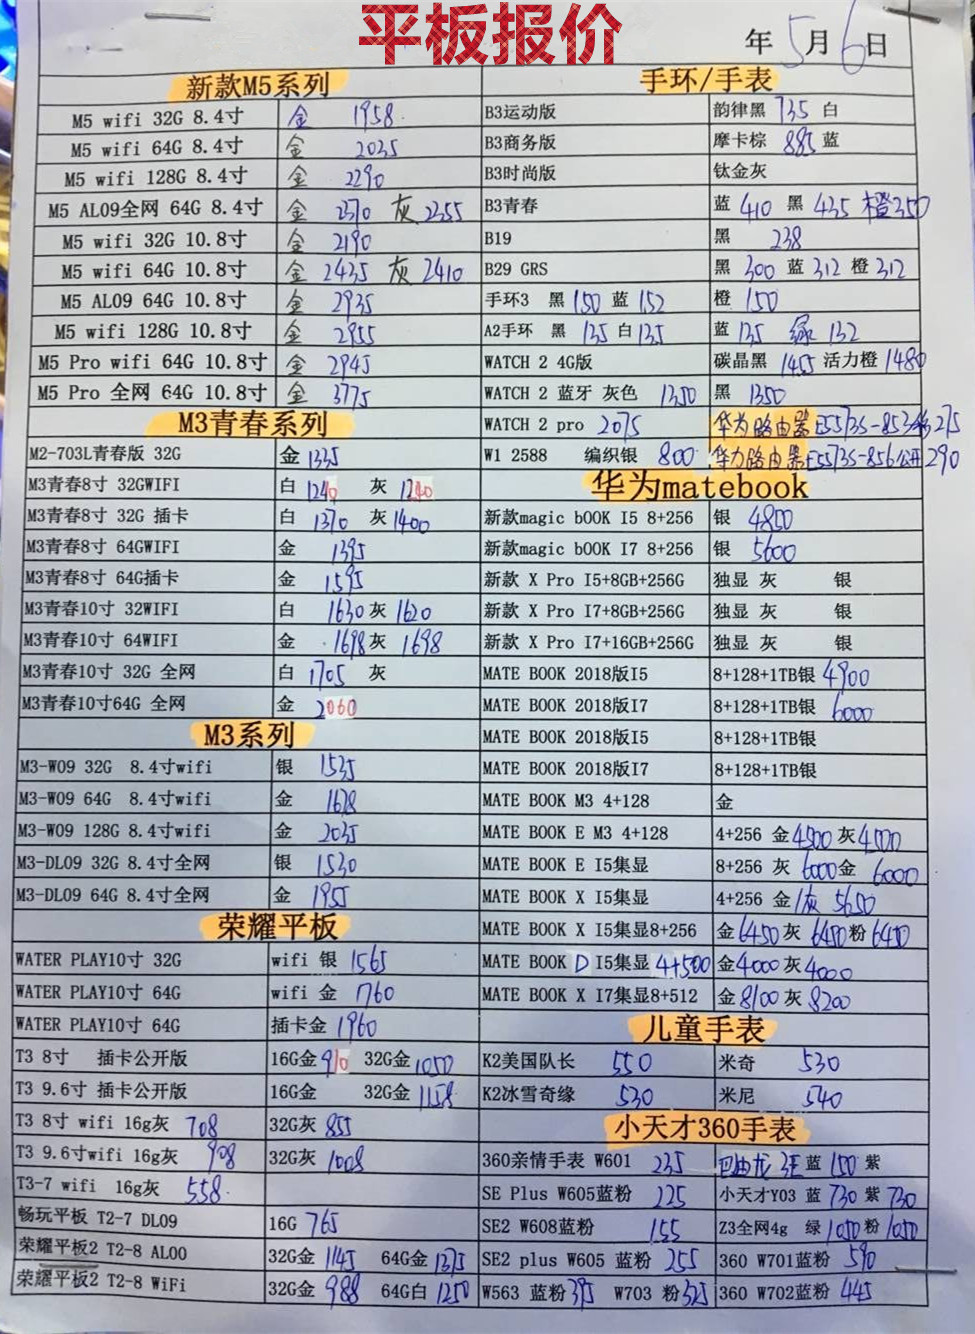 平板报价
年 5月6日
新款M5系列
M5 wifi 32G 8.4寸 金 1958
M5 wifi 64G 8.4寸 金 2035
M5 wifi 128G 8.4寸 金 2290
M5 AL09全网 64G 8.4寸 金 2370 灰 2355
M5 wifi 32G 10.8寸 金 2190
M5 wifi 64G 10.8寸 金 2435 灰 2410
M5 AL09 64G 10.8寸 金 2935
M5 wifi 128G 10.8寸 金 2855
M5 Pro wifi 64G 10.8寸 金 2945
M5 Pro 全网 64G 10.8寸 金 3775
M3青春系列
M2-703L青春版 32G 金 1335
M3青春8寸 32GWIFI 白 1240 灰 1240
M3青春8寸 32G 插卡 白 1370 灰 1400
M3青春8寸 64GWIFI 金 1395
M3青春8寸 64G插卡 金 1595
M3青春10寸 32WIFI 白 1630 灰 1620
M3青春10寸 64WIFI 金 1698 灰 1698
M3青春10寸 32G 全网 白 1705 灰
M3青春10寸64G 全网 金 2060
M3系列
M3-W09 32G 8.4寸wifi 银 1535
M3-W09 64G 8.4寸wifi 金 1628
M3-W09 128G 8.4寸wifi 金 2035
M3-DL09 32G 8.4寸全网 银 1530
M3-DL09 64G 8.4寸全网 金 1955
荣耀平板
WATER PLAY10寸 32G wifi 银 1565
WATER PLAY10寸 64G wifi 金 1760
WATER PLAY10寸 64G 插卡金 1960
T3 8寸 插卡公开版 16G金 910 32G金 1050
T3 9.6寸 插卡公开版 16G金 32G金 1158
T3 8寸 wifi 16g灰 708 32G灰 855
T3 9.6寸wifi 16g灰 908 32G灰 1008
T3-7 wifi 16g灰 558
畅玩平板 T2-7 DL09 16G 765
荣耀平板2 T2-8 AL00 32G金 1145 64G金 1375
荣耀平板2 T2-8 WiFi 32G金 988 64G白 1250
手环/手表
B3运动版 韵律黑 735 白
B3商务版 摩卡棕 885 蓝
B3时尚版 钛金灰
B3青春 蓝 410 黑 435 橙350
B19 黑 238
B29 GRS 黑 300 蓝 312 橙 312
手环3 黑 150 蓝 152 橙 150
A2手环 黑 135 白135 蓝 135 绿 132
WATCH 2 4G版 碳晶黑 1455 活力橙 1480
WATCH 2 蓝牙 灰色 1350 黑 1350
WATCH 2 pro 2075 华为路由器E5573S-853 275
W1 2588 编织银 800 华为路由器E5573S-856公开 290
华为matebook
新款magic bOOK I5 8+256 银 4850
新款magic bOOK I7 8+256 银 5600
新款 X Pro I5+8GB+256G 独显 灰 银
新款 X Pro I7+8GB+256G 独显 灰 银
新款 X Pro I7+16GB+256G 独显 灰 银
MATE BOOK 2018版I5 8+128+1TB银 4900
MATE BOOK 2018版I7 8+128+1TB银 6000
MATE BOOK 2018版I5 8+128+1TB银
MATE BOOK 2018版I7 8+128+1TB银
MATE BOOK M3 4+128 金
MATE BOOK E M3 4+128 4+256 金4500 灰4500
MATE BOOK E I5集显 8+256 灰 6000金 6000
MATE BOOK X I5集显 4+256 金/灰 5650
MATE BOOK X I5集显8+256 金6450灰 6450粉6450
MATE BOOK D I5集显 4+500 金4000灰4000
MATE BOOK X I7集显8+512 金8100灰8200
儿童手表
K2美国队长 550 米奇 530
K2冰雪奇缘 530 米尼 540
小天才360手表
360亲情手表 W601 235 巴迪龙 3E 蓝 150 紫
SE Plus W605蓝粉 225 小天才Y03 蓝 730 紫 730
SE2 W608蓝粉 155 Z3全网4g 绿 1050粉 1050
SE2 plus W605 蓝粉 255 360 W701蓝粉 590
W563 蓝粉 395 W703 粉525 360 W702蓝粉 445